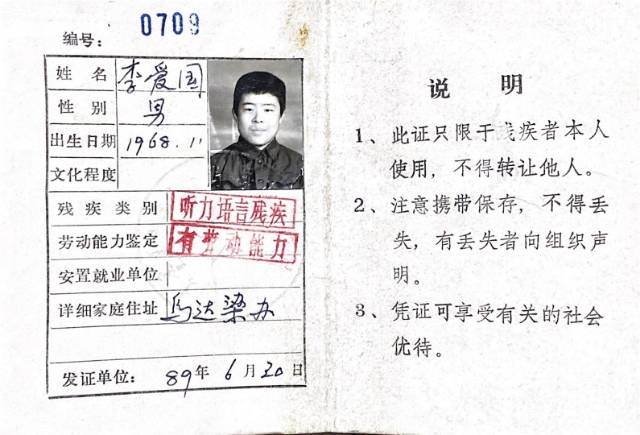 编号: 0709
姓名 李爱国
性别 男
出生日期 1968.11
文化程度
残疾类别 听力语言残疾
劳动能力鉴定 有劳动能力
安置就业单位
详细家庭住址 乌达梁办
发证单位: 89年6月30日
说 明
1、此证只限于残疾者本人
使用，不得转让他人。
2、注意携带保存，不得丢
失，有丢失者向组织声
明。
3、凭证可享受有关的社会
优待。